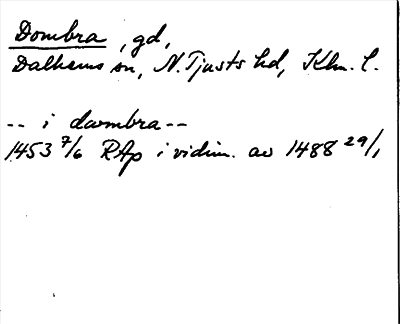 Dombra, gd,
Dalhems sn, N. Tjusts hd, Klm. l.
-- i dambra --
1453 7/6 RAp i vidim. av 1488 29/1